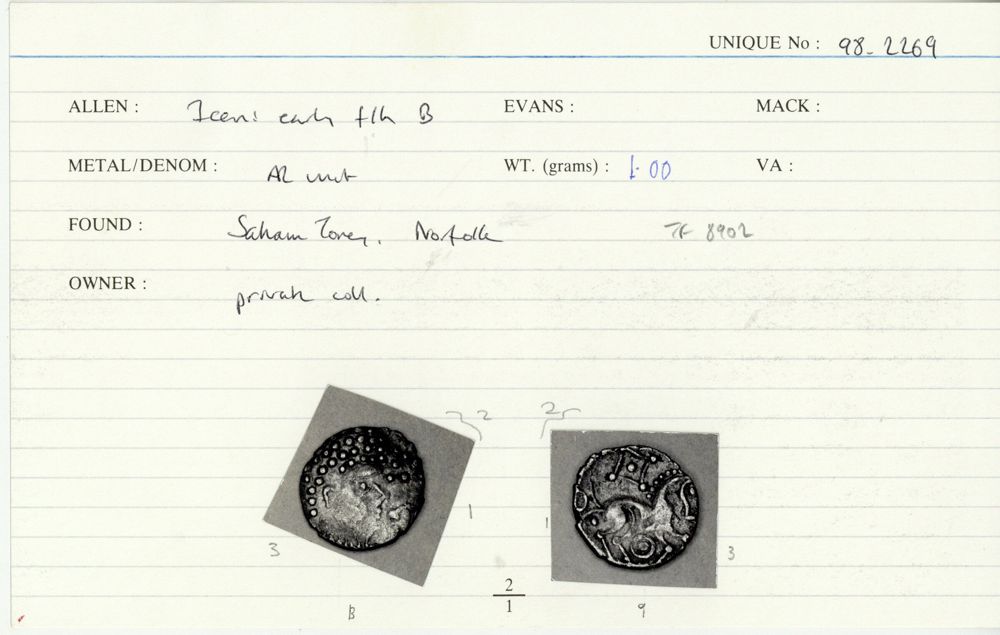 UNIQUE No : 98-2269
ALLEN : Iceni early f/h B EVANS : MACK :
METAL/DENOM : AR unit WT. (grams) : 1.00 VA :
FOUND : Saham Toney, Norfolk TF 8902
OWNER : private coll.
2 2
1 1
3 3
2
1
B 9